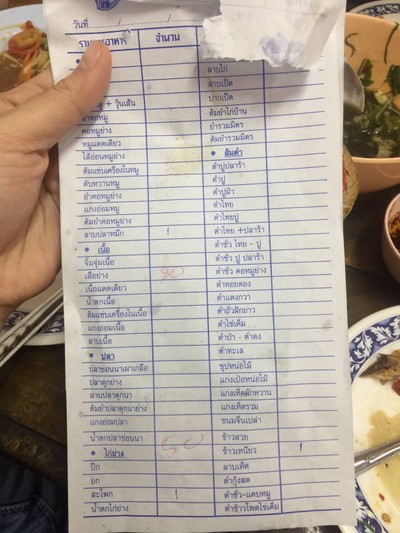 วันที่ / /
จำนวน
ลาบไก่
ลาบเป็ด
+ วุ้นเส้น
ต้มยำไก่บ้าน
ยำรวมมิตร
คอหมูย่าง
ต้มยำรวมมิตร
หมูแดดเดียว
• ส้มตำ
ไส้อ่อนหมูย่าง
ตำปูปลาร้า
ต้มแซ่บเครื่องในหมู
ตำปู
ตับหวานหมู
ตำปูม้า
ยำคอหมูย่าง
ตำไทย
แกงอ่อมหมู
ตำไทยปู
ต้มยำคอหมูย่าง
ตำไทย +ปลาร้า
ลาบปลาหมึก 1
ตำซั่ว ไทย - ปู
• เนื้อ
ตำซั่ว ปู ปลาร้า
จิ้มจุ่มเนื้อ
ตำซั่ว คอหมูย่าง
เสือย่าง 80
ตำหอยดอง
เนื้อแดดเดียว
ตำแตงกวา
น้ำตกเนื้อ
ตำถั่วฝักยาว
ต้มแซ่บเครื่องในเนื้อ
ตำไข่เค็ม
แกงอ่อมเนื้อ
ตำป่า - ตำดง
ลาบเนื้อ
ตำทะเล
• ปลา
ซุปหน่อไม้
ปลาช่อนนาเผาเกลือ
แกงเปอะหน่อไม้
ปลาดุกย่าง
แกงเห็ดผักหวาน
ลาบปลาดุกนา
แกงเห็ดรวม
ต้มยำปลาดุกนาย่าง
ขนมจีนเปล่า
แกงอ่อมปลา
ข้าวสวย
น้ำตกปลาช่อนนา 50
ข้าวเหนียว 1
• ไก่ย่าง
ลาบเห็ด
ปีก
ตำกุ้งสด
อก
ตำซั่ว-แคบหมู
สะโพก 1
ตำข้าวโพดไข่เค็ม
น้ำตกไก่ย่าง